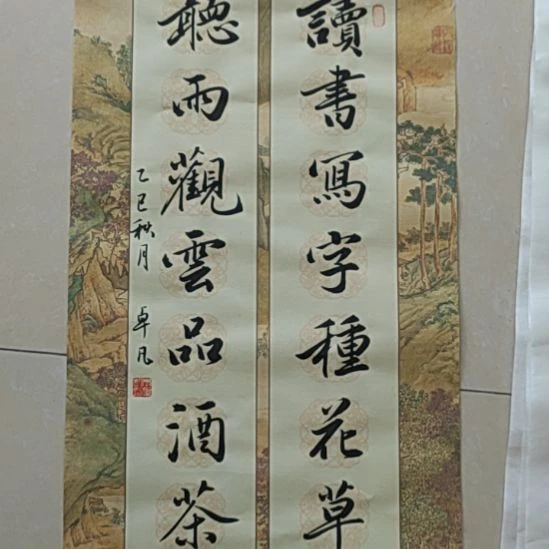 讀書寫字種花草
聽雨觀雲品酒茶
乙巳秋月 卓凡